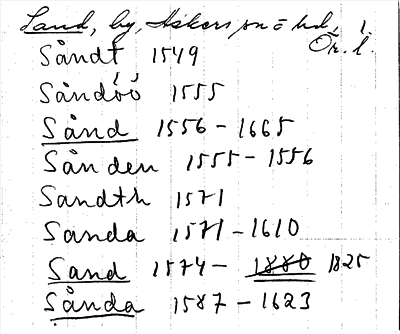 Sand, by, Askers sn o hd, Ör. l.
Såndt 1549
Såndöö 1555
Sånd 1556 - 1665
Sånden 1555 - 1556
Sandth 1571
Sanda 1571 - 1610
Sand 1574 - 1880 1825
Sånda 1587 - 1623